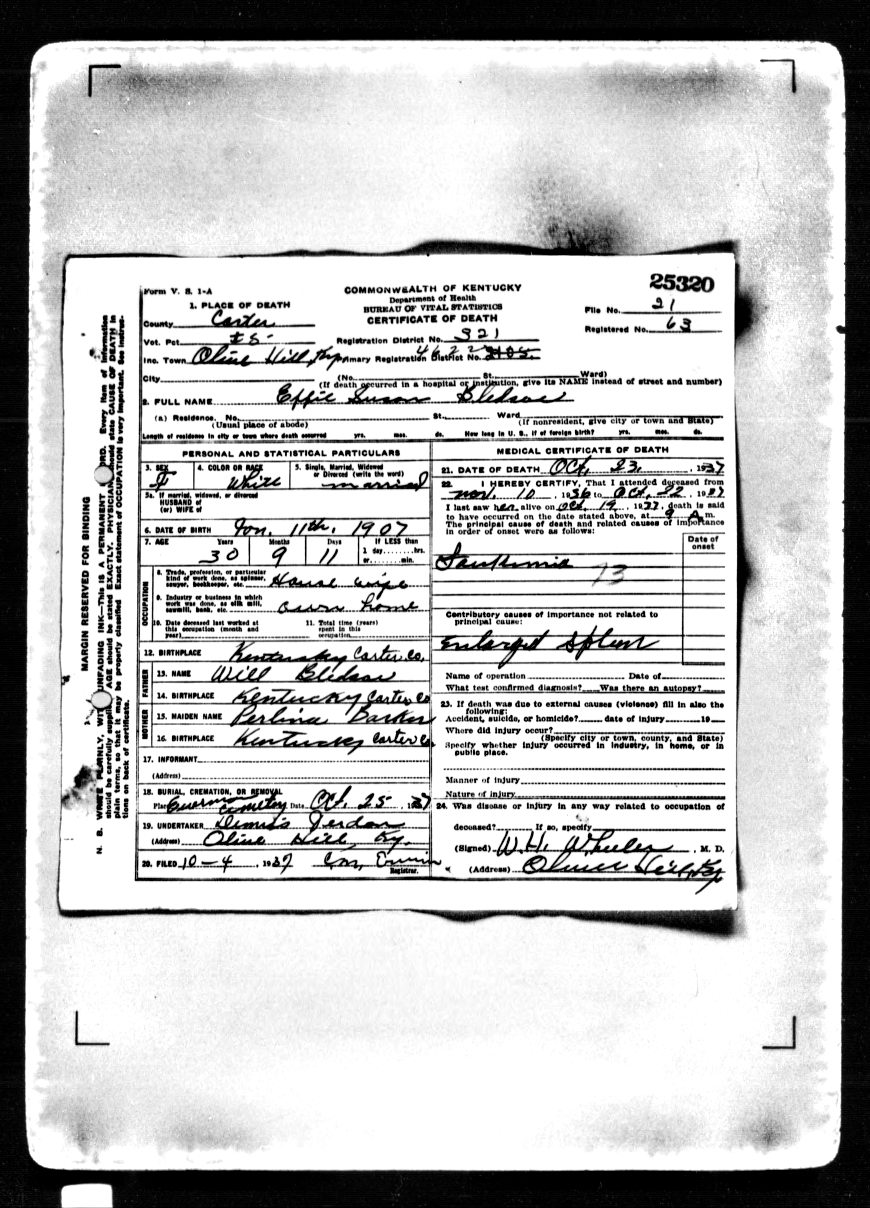 Form V. S. 1-A
COMMONWEALTH OF KENTUCKY
25320
Department of Health
1. PLACE OF DEATH
BUREAU OF VITAL STATISTICS
File No. 21
County Carter
CERTIFICATE OF DEATH
Registered No. 63
Vot. Pct #5
Registration District No. 321
Inc. Town Olive Hill, Ky. Primary Registration District No. 4622
City (No. St. Ward)
(If death occurred in a hospital or institution, give its NAME instead of street and number)
2. FULL NAME Effie Susan Bledsoe
(a) Residence. No. St. Ward
(Usual place of abode) (If nonresident, give city or town and State)
Length of residence in city or town where death occurred yrs. mos. ds. How long in U. S., if of foreign birth? yrs. mos. ds.
PERSONAL AND STATISTICAL PARTICULARS
3. SEX F
4. COLOR OR RACE White
5. Single, Married, Widowed or Divorced (write the word) married
5a. If married, widowed, or divorced
HUSBAND of
(or) WIFE of
6. DATE OF BIRTH Jan. 11th, 1907
7. AGE Years 30 Months 9 Days 11 If LESS than 1 day hrs. or min.
OCCUPATION
8. Trade, profession, or particular
kind of work done, as spinner,
sawyer, bookkeeper, etc. House wife
9. Industry or business in which
work was done, as silk mill,
sawmill, bank, etc. own home
10. Date deceased last worked at
this occupation (month and
year)
11. Total time (years)
spent in this
occupation
12. BIRTHPLACE Kentucky Carter Co.
FATHER
13. NAME Will Bledsoe
14. BIRTHPLACE Kentucky Carter Co
MOTHER
15. MAIDEN NAME Perlina Barker
16. BIRTHPLACE Kentucky Carter Co.
17. INFORMANT
(Address)
18. BURIAL, CREMATION, OR REMOVAL
Place cemetery Date Oct. 25, 1937
19. UNDERTAKER Jerdon
(Address) Olive Hill, Ky.
20. FILED 10-4, 1937 Erwin
Registrar.
MEDICAL CERTIFICATE OF DEATH
21. DATE OF DEATH Oct. 23, 1937
22. I HEREBY CERTIFY, That I attended deceased from
Nov. 10, 1936 to Oct. 22, 1937
I last saw her alive on Oct. 19, 1937, death is said
to have occurred on the date stated above, at 9 A m.
The principal cause of death and related causes of importance
in order of onset were as follows:
Date of
onset
Leukemia
Contributory causes of importance not related to
principal cause:
Enlarged Spleen
Name of operation Date of
What test confirmed diagnosis? Was there an autopsy?
23. If death was due to external causes (violence) fill in also the
following:
Accident, suicide, or homicide? date of injury 19
Where did injury occur?
(Specify city or town, county, and State)
Specify whether injury occurred in industry, in home, or in
public place.
Manner of injury
Nature of injury
24. Was disease or injury in any way related to occupation of
deceased? If so, specify
(Signed) W. H. Wheeler, M. D.
(Address) Olive Hill, Ky
MARGIN RESERVED FOR BINDING